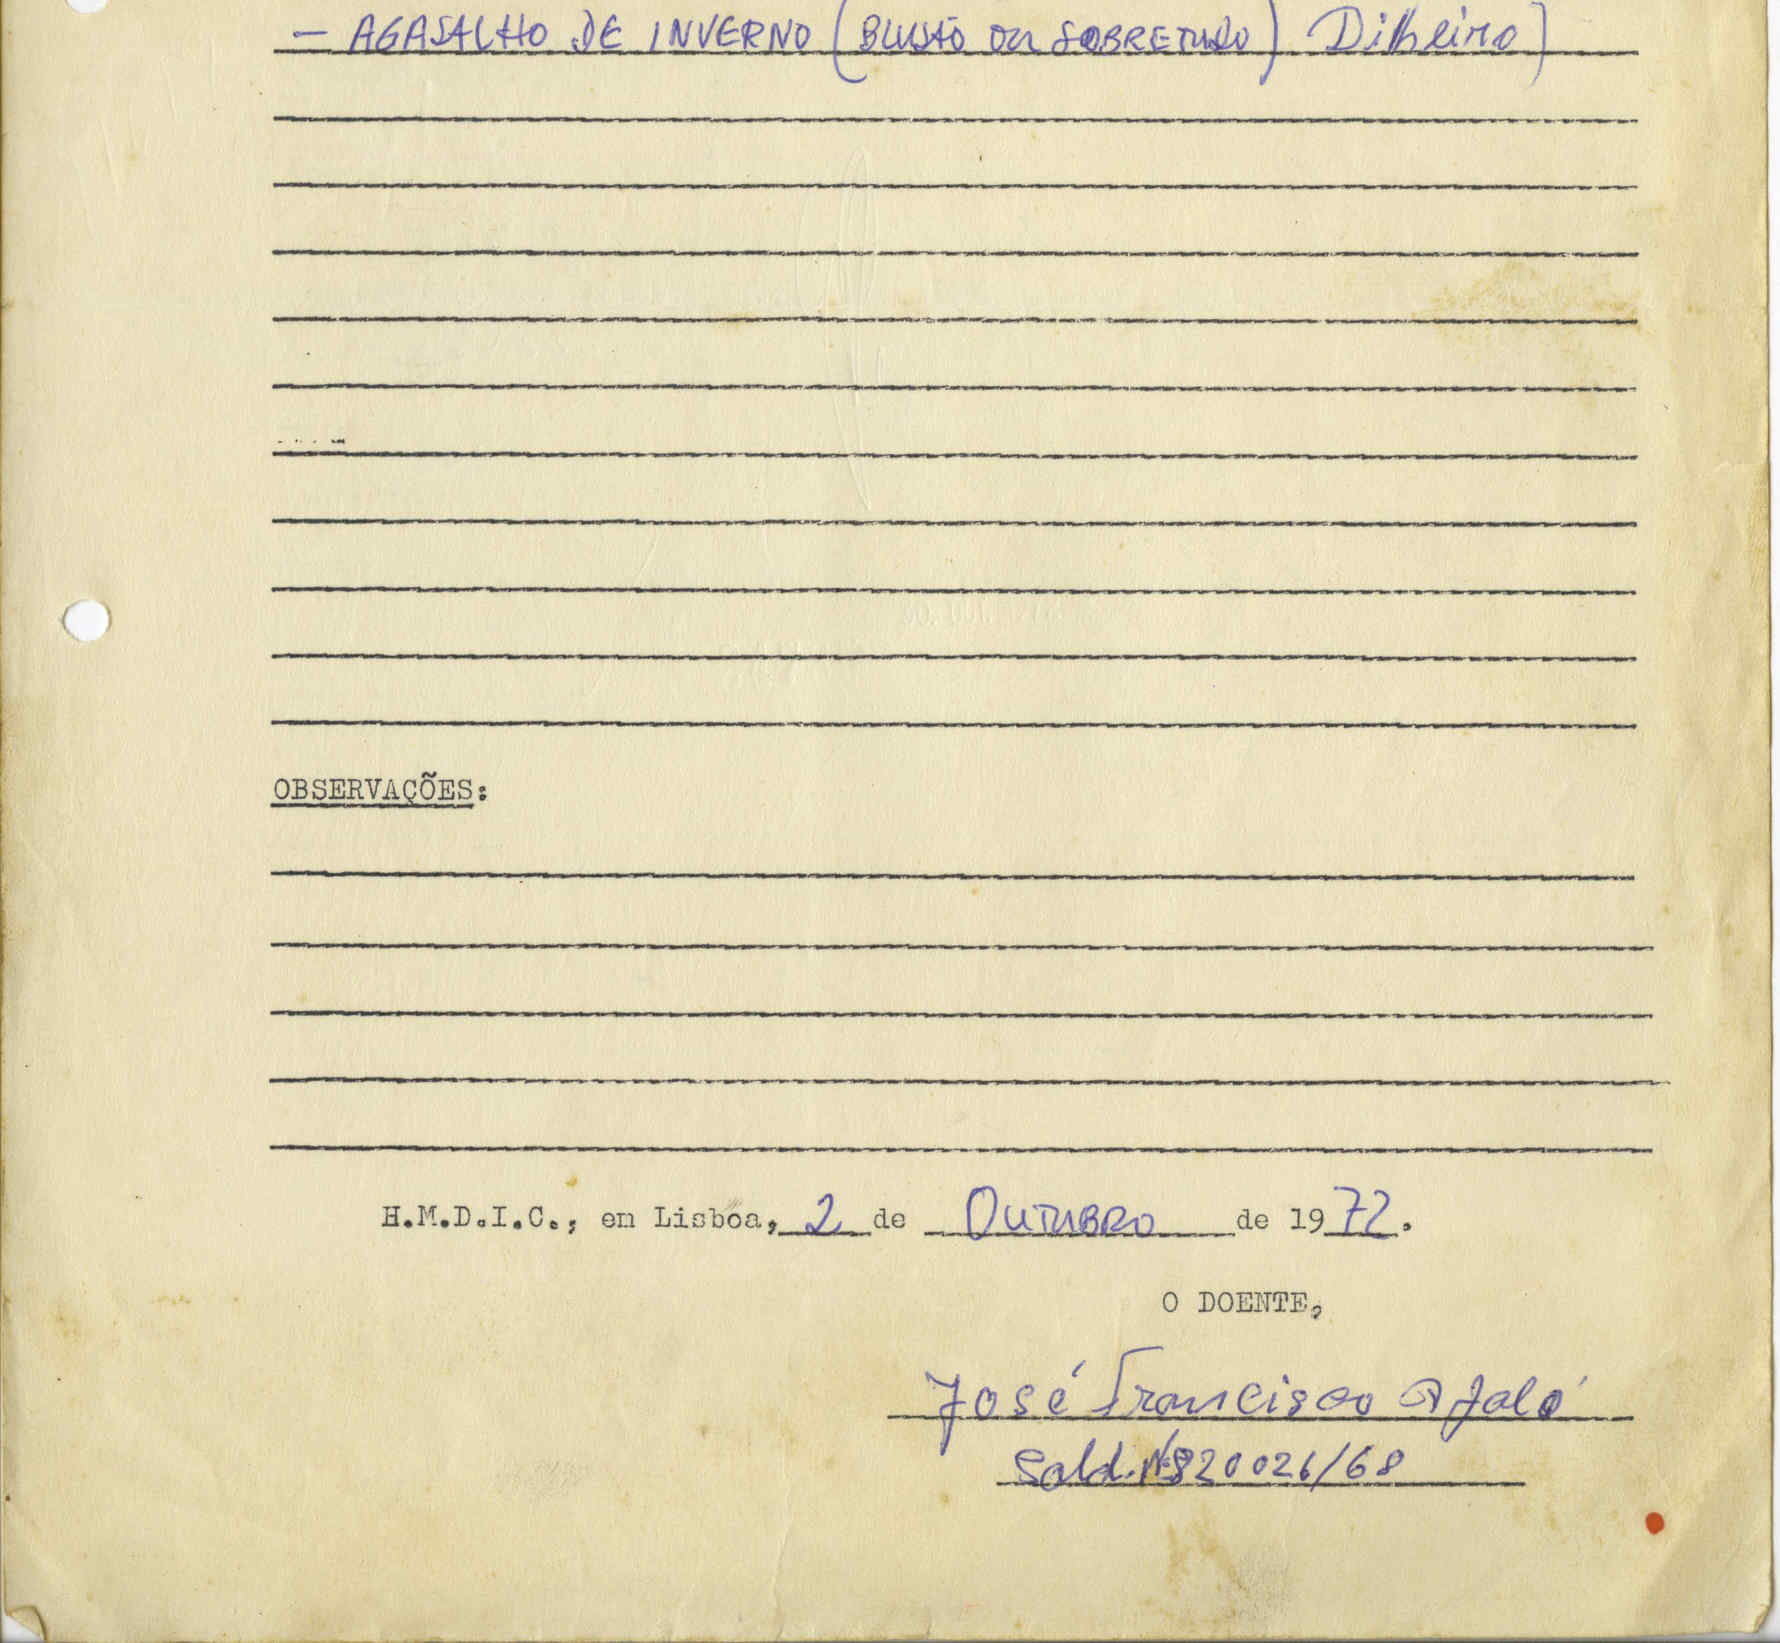 — AGASALHO DE INVERNO (BLUSÃO OU SOBRETUDO) Diheiro)
OBSERVAÇÕES:
H.M.D.I.C., en Lisboa, 2 de OUTUBRO de 1972.
O DOENTE,
José Francisco Djaló
Sold. Nº 820026/68